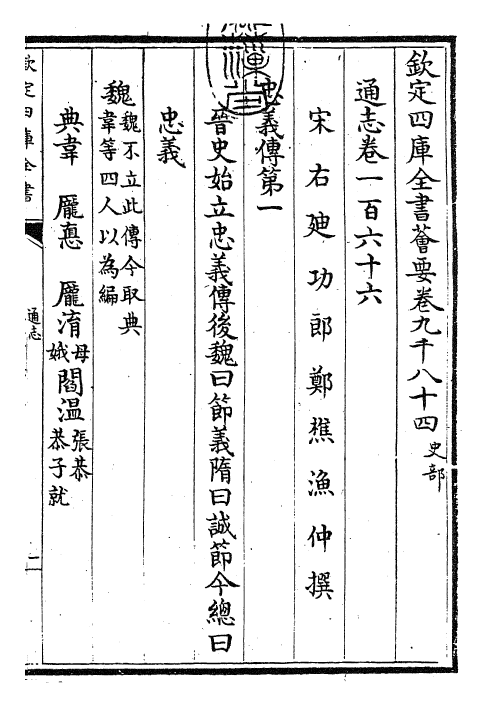 欽定四庫全書薈要卷九千八十四 史部
通志卷一百六十六
宋右迪功郎鄭樵漁仲撰
忠義傳第一
晉史始立忠義傳後魏曰節義隋曰誠節今總曰
忠義
魏 魏不立此傳今取典
韋等四人以為編
典韋 龎悳 龎淯 母娥 閻温 張恭 恭子就
欽定四庫全書
通志